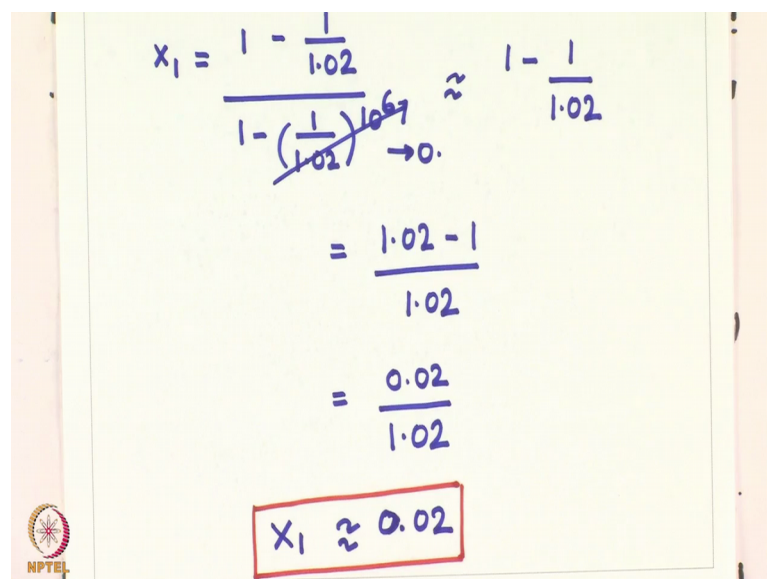 x₁ = (1 - 1/1.02) / (1 - (1/1.02)^10⁶) ≈ 1 - 1/1.02
→0.
= (1.02 - 1)/1.02
= 0.02/1.02
x₁ ≈ 0.02
NPTEL